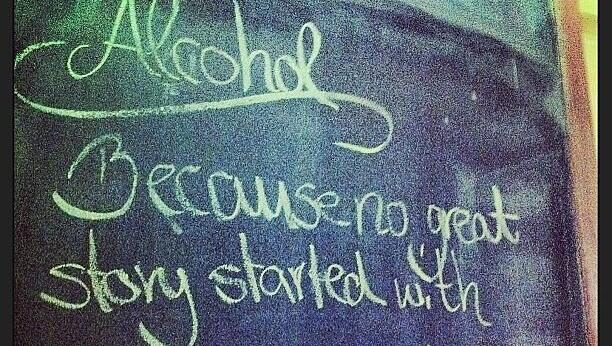 Alcohol
Because no great
story started with